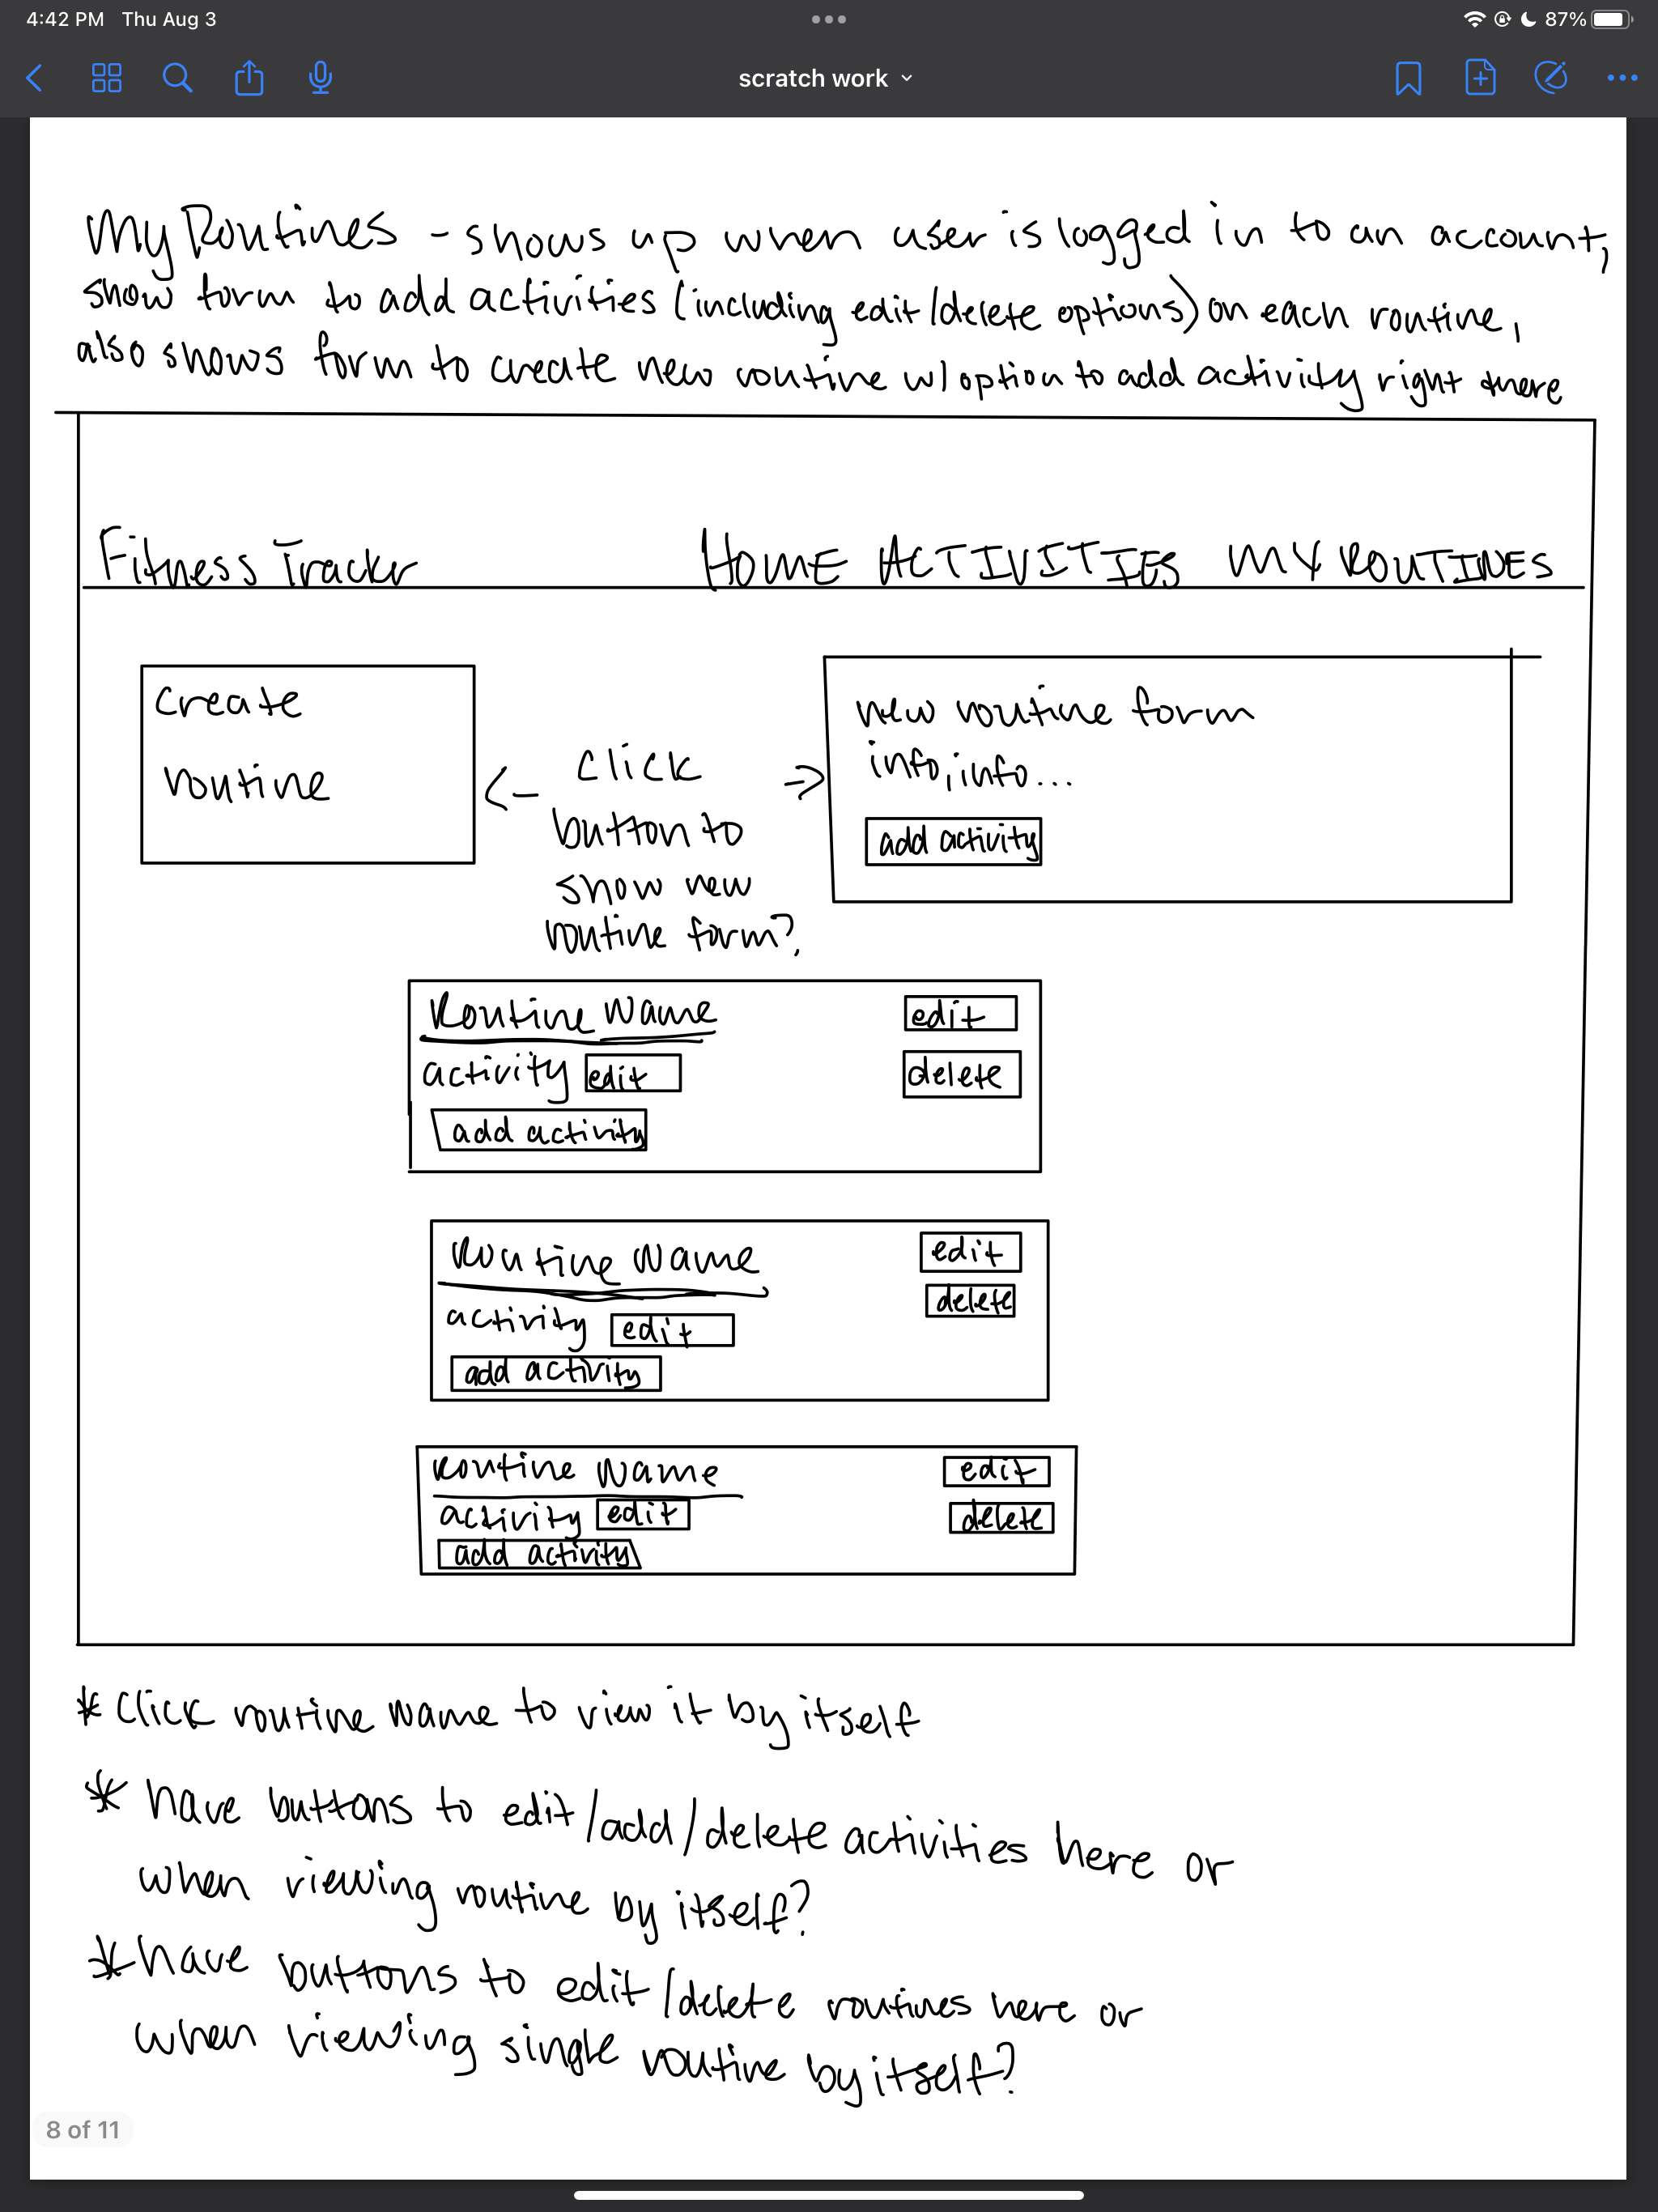 4:42 PM Thu Aug 3
87%
scratch work
My Routines - shows up when user is logged in to an account,
show form to add activities (including edit/delete options) on each routine,
also shows form to create new routine w/ option to add activity right there
Fitness Tracker HOME ACTIVITIES MY ROUTINES
create
routine
<- click
button to
show new
routine form?
->
new routine form
info, info...
add activity
Routine Name edit
activity edit delete
add activity
Routine Name edit
delete
activity edit
add activity
Routine Name edit
activity edit delete
add activity
* Click routine name to view it by itself
* have buttons to edit/add/delete activities here or
when viewing routine by itself?
* have buttons to edit/delete routines here or
when viewing single routine by itself?
8 of 11